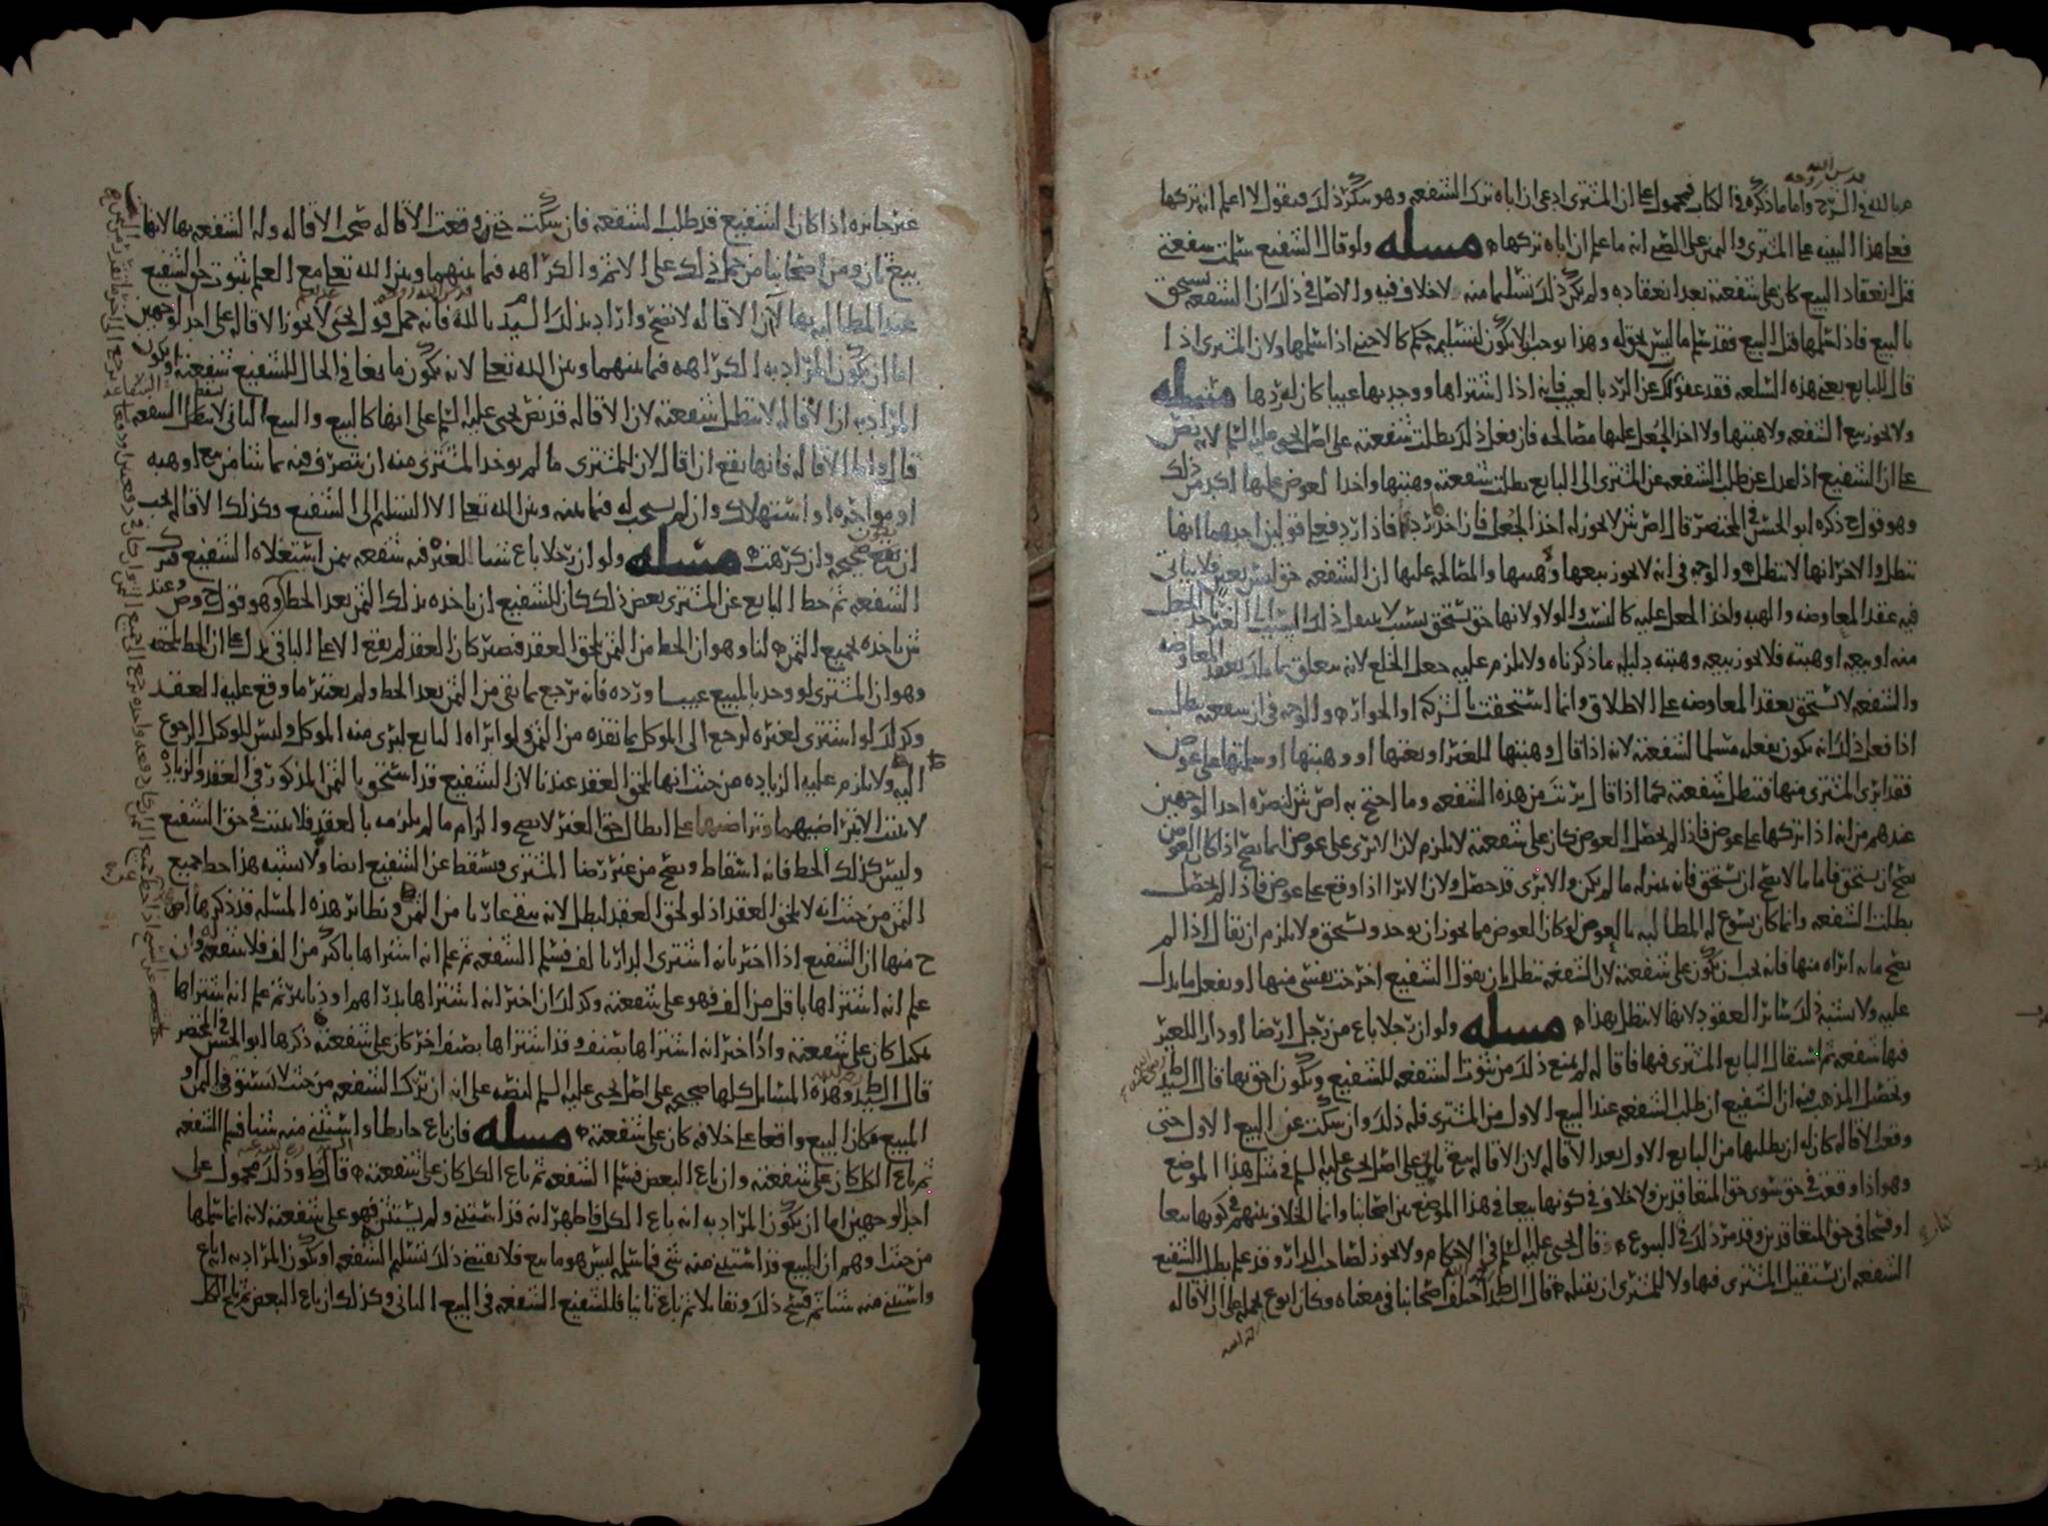 قدس الله روحه
بالله في الشرح واما ما ذكره في الكتاب فمحمول على ان المشتري ادعى ان اباه ترك الشفعه وهو ينكر ذلك فيقول لا اعلم انه تركها
فعلى هذا البينه على المشتري واليمين على الصبي انه ما علم ان اباه تركها مسله ولو قال الشفيع سلمت شفعتي
قبل انعقاد البيع كان على شفعته بعد انعقاده ولم يكن ذلك تسليما منه لا خلاف فيه والاصل في ذلك ان الشفعه تستحق
بالبيع فاذا سلمها قبل البيع فقد سلم ما ليس بحق له وهذا يوجب الا يكون لتسليمه حكم كالاجنبي اذا سلمها ولان المشتري اذا
قال للبايع بعني هذه السلعه فقد عفوت لك عن الرد بالعيب فانه اذا اشتراها ووجد بها عيبا كان له ردها مسله
ولا يجوز بيع الشفعه ولا هبتها ولا اخذ الجعل عليها مصالحه فان فعل ذلك بطلت شفعته على اصل يحيى عليه السلم لانه نص
على ان الشفيع اذا عدل عن طلب الشفعه عن المشتري الى البايع بطلت شفعته وهبتها واخذ العوض عليها اكثر من ذلك
وهو قول ح ذكره ابو الحسن في المختصر قال ص ش لا يجوز له اخذ الجعل فان اخذ رد فاذا رد فعلى قولين احدهما انها
تبطل والاخر انها لا تبطل والوجه في انه لا يجوز بيعها وهبتها والمصالحه عليها ان الشفعه حق ليس بعين فلا يتاتى
فيه عقد المعاوضه والهبه واخذ الجعل عليه كالنسب والولا ولانها حق يستحق بسبب لا ينقل ذلك السبب الى الغير
منه او بيعه او هبته فلا يجوز بيعه وهبته دليله ما ذكرناه ولا يلزم عليه جعل الخلع لانه يتعلق بما ملك بعقد المعاوضه
والشفعه لا تستحق بعقد المعاوضه على الاطلاق وانما استحقت بالشركه او الجوار والوجه في ان شفعته تبطل
اذا فعل ذلك انه يكون بفعله مسلما لشفعته لانه اذا قال وهبتها للغير او بعتها او وهبتها او سلمتها على عوض
فقد ابرى المشتري منها فتبطل شفعته كما اذا قال برئت من هذه الشفعه وما احتج به اص ش لنصره احد الوجهين
عندهم من انه اذا تركها على عوض فاذا لم يحصل العوض كان على شفعته لا يلزم لان الابرى على عوض انما يصح اذا كان العوض
يصح ان يستحق فاما ما لا يصح ان يستحق فانه بمنزله ما لم يكن والابرى قد حصل ولان الابرا اذا وقع على عوض فاذا لم يحصل
بطلت الشفعه وانما كان يسوغ له المطالبه بالعوض لو كان العوض مما يجوز ان يوخذ ويستحق ولا يلزم ان يقال اذا لم
يصح ما به ابراه منها فانه يجب ان يكون على شفعته لان الشفعه تبطل بان يقول الشفيع اخرجت نفسي منها او يفعل ما يدل
عليه ولا يشبه ذلك سائر العقود لانها لا تبطل بهذا مسله ولو ان رجلا باع من رجل ارضا او دارا للغير
فيها شفعه ثم استقال البايع المشتري فيها فاقاله لم يمنع ذلك من ثبوت الشفعه للشفيع ويكون احق بها قال السيد ط
وتحصيل المذهب فيه ان الشفيع ان طلب الشفعه عند البيع الاول من المشتري فله ذلك وان سكت عن البيع الاول حتى
وقعت الاقاله كان له ان يطلبها من البايع الاول بعد الاقاله لان الاقاله بيع ثان على اصل يحيى عليه السلم في مثل هذا الموضع
وهو اذا وقعت في حق سوى حق المتعاقدين ولا خلاف في كونها بيعا في هذا الموضع بين اصحابنا وانما الخلاف بينهم في كونها بيعا
او فسخا في حق المتعاقدين وقد مر ذلك في البيوع قال يحيى عليه السلم في الاحكام ولا يجوز لصاحب الدار وقد علم بطلب الشفيع
الشفعه ان يستقيل المشتري فيها ولا للمشتري ان يقيله قال السيد ط اختلف اصحابنا في معناه وكان ابو ع يحمله على ان الاقاله
غير جائزه اذا كان الشفيع قد طلب الشفعه فان سكت حتى وقعت الاقاله صحت الاقاله وله الشفعه بها لانها
بيع ثان ومن اصحابنا من حمل ذلك على الاثم والكراهه فيما بينهما وبين الله تعلى مع العلم بثبوت حق الشفيع
عند المطالبه بها لان الاقاله لا تصح واراد بذلك السيد م بالله فانه حمل قول يحيى لا يجوز الاقاله على احد الوجهين
اما ان يكون المراد به الكراهه فيما بينهما وبين الله تعلى لانه يكون مانعا في الحال للشفيع شفعته او يكون
المراد به ان الاقاله لا تبطل شفعته لان الاقاله قد نص يحيى عليه السلم على انها كالبيع والبيع الثاني لا يبطل الشفعه
قال واما الاقاله فانها تقع ان اقال لان للمشتري ما لم يوخذ المشترى منه ان يتصرف فيه بما شا من بيع او هبه
او مواجره او استهلاك وان لم يستحب له فيما بينه وبين الله تعلى الا التسليم الى الشفيع وكذلك الاقاله يجب
ان تقع صحيحه وان كرهت مسله ولو ان رجلا باع شيا للغير فيه شفعه بثمن استغلاه الشفيع فترك
الشفعه ثم حط البايع عن المشتري بعض ذلك كان للشفيع ان ياخذه بذلك الثمن بعد الحط وهو قول ح وص وعند
ش ياخذه بجميع الثمن لنا وهو ان الحط من الثمن يلحق العقد فيصير كان العقد لم يقع الا على الباقي يدل على ان الحط يلحقه
وهو ان المشتري لو وجد بالمبيع عيبا ورده فانه يرجع بما بقي من الثمن بعد الحط ولم يعتبر ما وقع عليه العقد
وكذلك لو اشترى لغيره لرجع الى الموكل بما نقده من الثمن ولو ابراه البايع لبرى منه الموكل وليس للوكيل الرجوع
اليه ولا يلزم عليه الزياده من حيث انها تلحق العقد عندنا لان الشفيع قد استحق بالثمن المذكور في العقد والزياده
لا تثبت الا بتراضيهما وتراضيهما على ابطال حق الغير لا يصح والزام ما لم يلزمه بالعقد فلا يثبت في حق الشفيع
وليس كذلك الحط فانه اسقاط ويصح من غير رضا المشتري فيسقط عن الشفيع ايضا ولا يشبه هذا حط جميع
الثمن من حيث انه لا يلحق العقد اذ لو لحق العقد لبطل لانه يبقى عاريا من الثمن ونظائر هذه المسله قد ذكرها اص
ح منها ان الشفيع اذا اخبر بانه اشترى الدار بالف فسلم الشفعه ثم علم انه اشتراها باكثر من الف فلا شفعه له وان
علم انه اشتراها باقل من الف فهو على شفعته وكذلك ان اخبر انه اشتراها بدراهم او دنانير ثم علم انه اشتراها
بمكيل كان على شفعته واذا اخبر انه اشتراها بصنف وقد اشتراها بصنف اخر كان على شفعته ذكرها ابو الحسن في المختصر
قال السيد ط وهذه المسائل كلها صحيحه على اصل يحيى عليه السلم لنصه على انه ان ترك الشفعه من حيث لا يستوفي الثمن او
المبيع فكان البيع واقعا على خلافه كان على شفعته مسله فان باع حائطا واستثنى منه شيا فسلم الشفعه
ثم باع الكل كان على شفعته وان باع البعض فسلم الشفعه ثم باع الكل كان على شفعته قال ط وذلك محمول على
احد وجهين اما ان يكون المراد به انه باع الكل فاظهر انه قد استثنى ولم يستثن فهو على شفعته لانه انما سلمها
من حيث اوهم ان المبيع قد استثنى منه شي فما سلمه ليس هو ما بيع فلا يقتضي ذلك تسليم الشفعه او يكون المراد به انه باع
واستثنى منه شيا ثم فسخ ذلك وتقايلا ثم باع ثانيا فللشفيع الشفعه في البيع الثاني وكذلك ان باع البعض ثم باع الكل